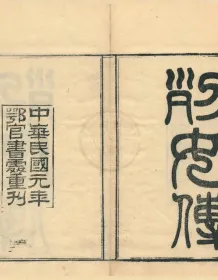 列女傳
中華民國元年
鄂官書處重刊